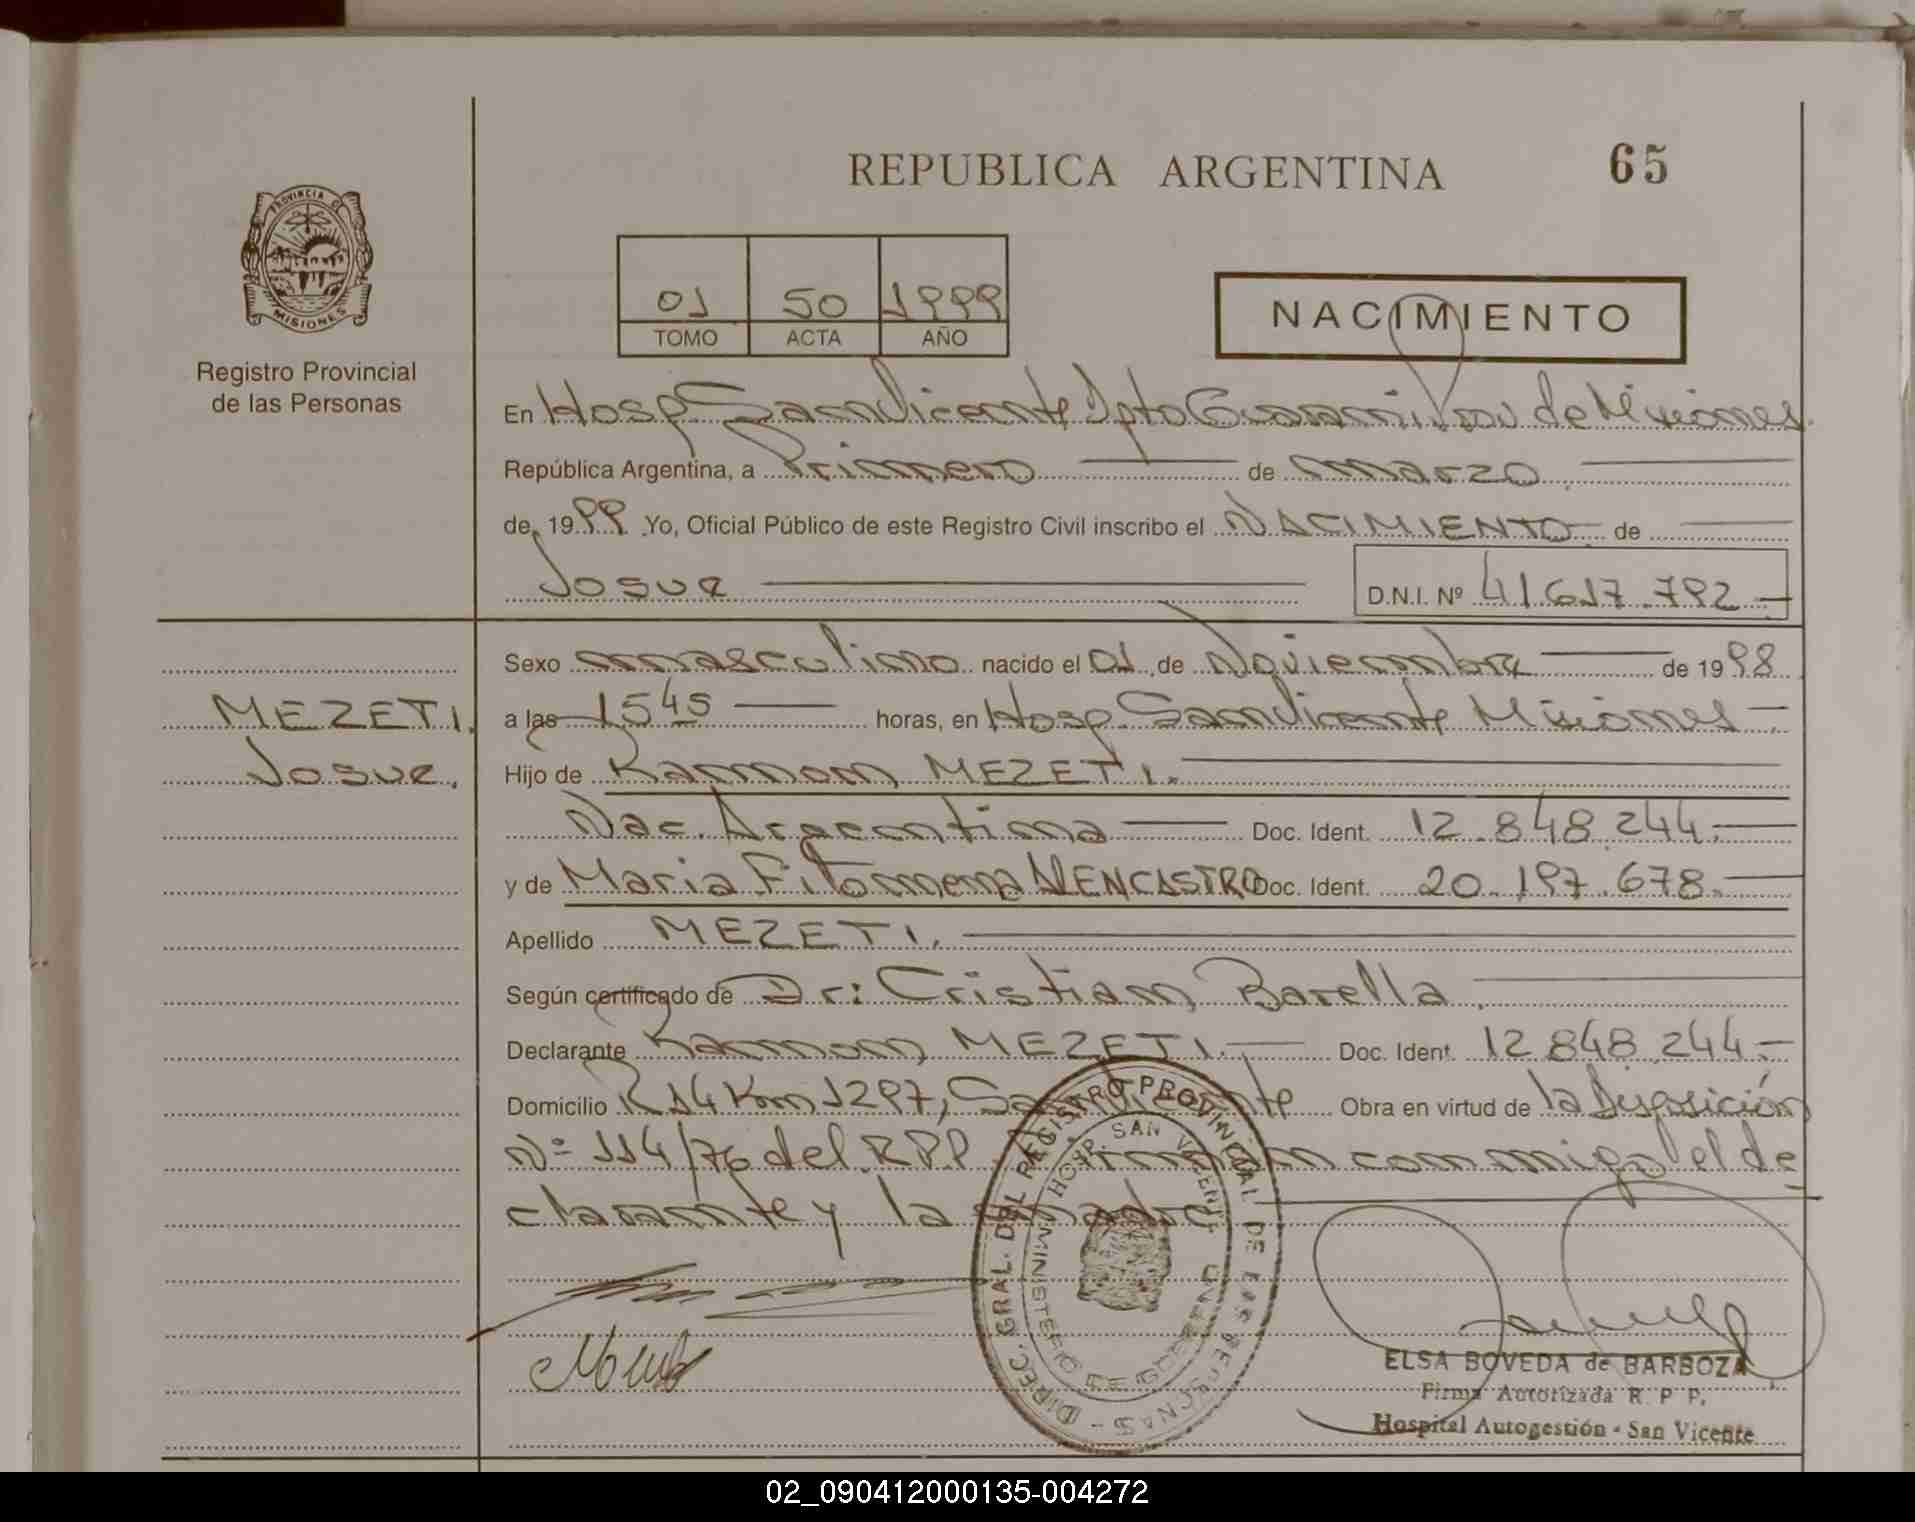 REPUBLICA ARGENTINA
65
PROVINCIA DE
MISIONES
Registro Provincial
de las Personas
01 50 1999
TOMO ACTA AÑO
NACIMIENTO
En Hosp. San Vicente Dpto Guarani Prov de Misiones
República Argentina, a Primero de marzo
de 1999 Yo, Oficial Público de este Registro Civil inscribo el NACIMIENTO de
Josue D.N.I. Nº 41.617.792
Sexo masculino nacido el 01 de Noviembre de 1998
MEZETI.
Josue.
a las 15 45 horas, en Hosp. San Vicente Misiones
Hijo de Ramon MEZETI.
Nac. Argentina Doc. Ident. 12.848.244.
y de Maria Filomena ALENCASTRO Doc. Ident. 20.197.678.
Apellido MEZETI.
Según certificado de Dr: Cristian Barella
Declarante Ramon MEZETI. Doc. Ident. 12.848.244.
Domicilio R 14 Km 1297, San Vicente Obra en virtud de la Disposición
Nº 114/76 del R.P.P. Firman conmigo el de
clarante y la madre
DIREC. GRAL. DEL REGISTRO PROVINCIAL DE LAS PERSONAS -
HOSP. SAN VICENTE
MINISTERIO DE GOBIERNO
ELSA BOVEDA de BARBOZA
Firma Autorizada R. P. P.
Hospital Autogestión - San Vicente
02_090412000135-004272